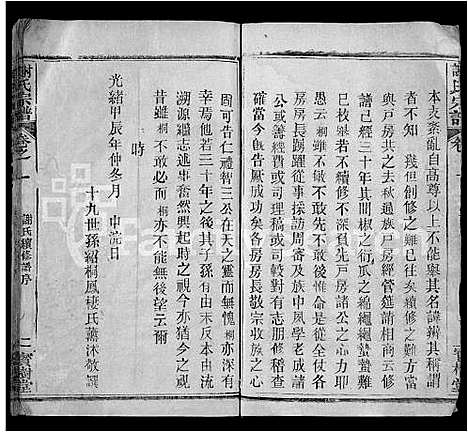 謝氏宗譜
本支紊亂自高尊以上不能舉其名諱辨其稱謂
者不知 幾人但創修之難已往矣續修之難何
與戶房共之去秋過族中房經管進譜相商三修
譜已經三十年其椒之衍瓜之綿繩繩蟄蟄難
已枚舉若不續修不深負先戶房諸公之心力耶
愚云桐不敏不敢任亦不敢不勉任是以邀集各
房房長踴躍從事訪周審及族中夙學老成請
公或善經費或司理稿或司較對有志朋修稽查
確當今冬各告厥成功矣各房房長敬宗收族之心
固可告仁禮暨三公在天之靈而無愧桐亦深有
幸焉他若三十年之後其子孫有返本反古由流
溯源繼志述事奮然興起時之視今亦猶今之視
昔雖桐不敢必而桐亦不能無後望云爾
時
光緒甲辰年仲冬月 中浣日
十九世孫紹桐鳳棲氏薰沐敬譔
謝氏宗譜
卷之一
謝氏續修譜序
二
寶樹堂